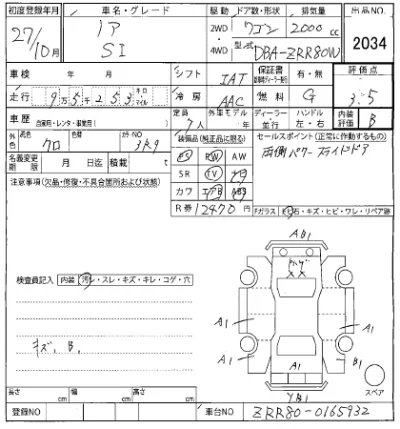 初度登録年月 車名・グレード 駆動 ドア数・形状 排気量 出品NO
27/10月 ノア SI 2WD・4WD ワゴン 2000cc 2034
型式 DBA-ZRR80W
車検 年 月 シフト IAT 保証書 有・無 評価点
走行 9万5千253 キロ・マイル 冷房 AAC 燃料 G 3.5
車歴 自家用・レンタ・事業用( ) 定員 7人 外車モデル 年 ディーラー・並行 ハンドル 左・右 内装評価 B
外色 元色 クロ 色替 カラーNO 3k9 装備品(純正品に限る) セールスポイント(正常に作動するもの)
両側パワースライドドア
名義変更期限 月 日迄 積載 t
PS PW AW
注意事項(欠品・修復・不具合箇所および状態)
SR TV ナビ
カワ エアB ABS
R券 12470円
Fガラス キズ・ヒビ・ワレ・リペア跡
検査員記入 内装 汚レ・スレ・キズ・キレ・コゲ・穴
AB1
A1 A1
キズ、B1
A1 A1 B1
A1
YB1
スペア
長さ cm 幅 cm 高さ cm
登録NO 車台NO ZRR80-0165932